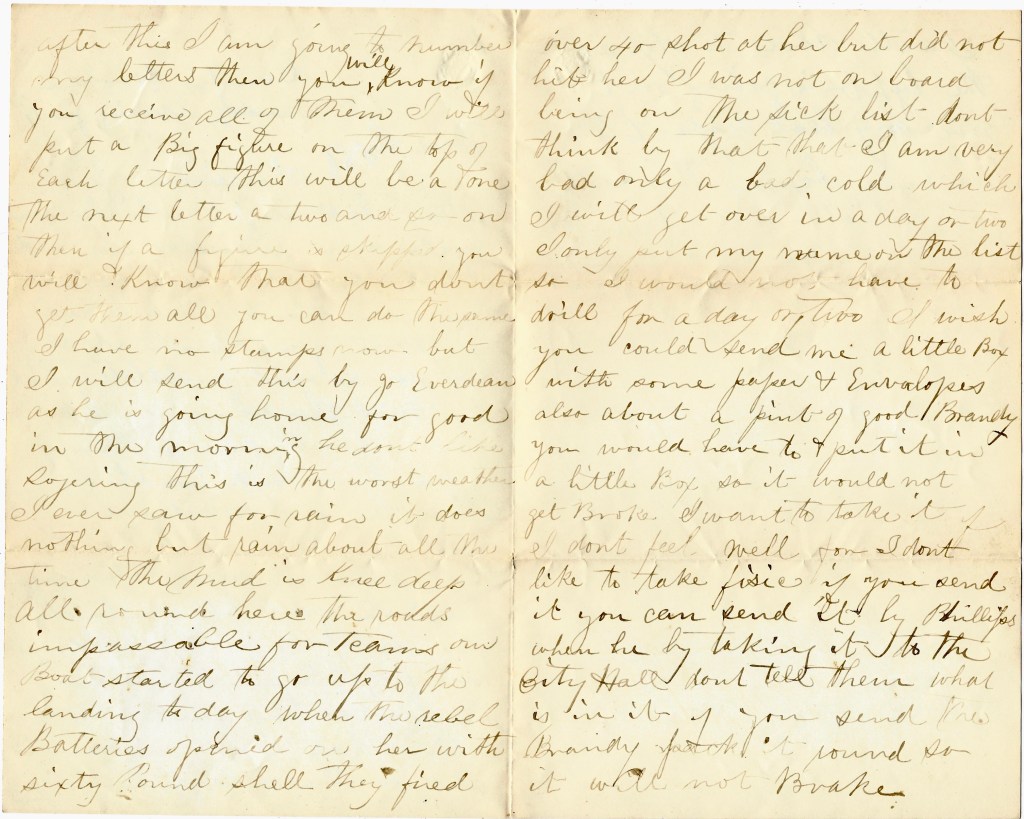 after this I am going to number
my letters then you will Know if
you receive all of them I will
put a Big figure on the top of
Each letter this will be a one
the next letter a two and so on
then if a figure is skipted you
will Know that you dont
get them all you can do the same
I have no stamps now but
I will send this by go Everdean
as he is going home for good
in the morning he dont like
sogering this is the worst weather
I ever saw for rain it does
nothing but rain about all the
time the mud is Knee deep
all round here the roads
impassable for Teams our
Boat started to go up to the
landing to day when the rebel
Batteries opened on her with
sixty Pound shell they fired
over 40 shot at her but did not
hit her I was not on board
being on the sick list dont
think by that that I am very
bad only a bad cold which
I will get over in a day or two
I only put my name on the list
so I would not have to
drill for a day or two I wish
you could send me a little Box
with some paper & Envalopes
also about a pint of good Brandy
you would have to put it in
a little Box so it would not
get Broke I want to take it if
I dont feel well for I dont
like to take fisic if you send
it you can send it by Phillips
when he by taking it to the
City Hall dont tell them what
is in it if you send the
Brandy pack it round so
it will not Brake